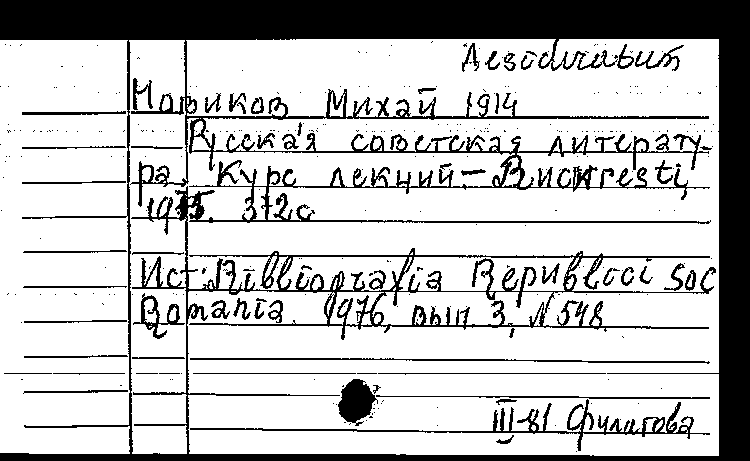 Desiderata
Новиков Михай 1914
Русская советская литерату-
ра. Курс лекций – Bucureşti,
1975. 372с
Ист: Bibliografia Republicii Soc
Romania. 1976, вып. 3, N 548.
III-81 Филатова